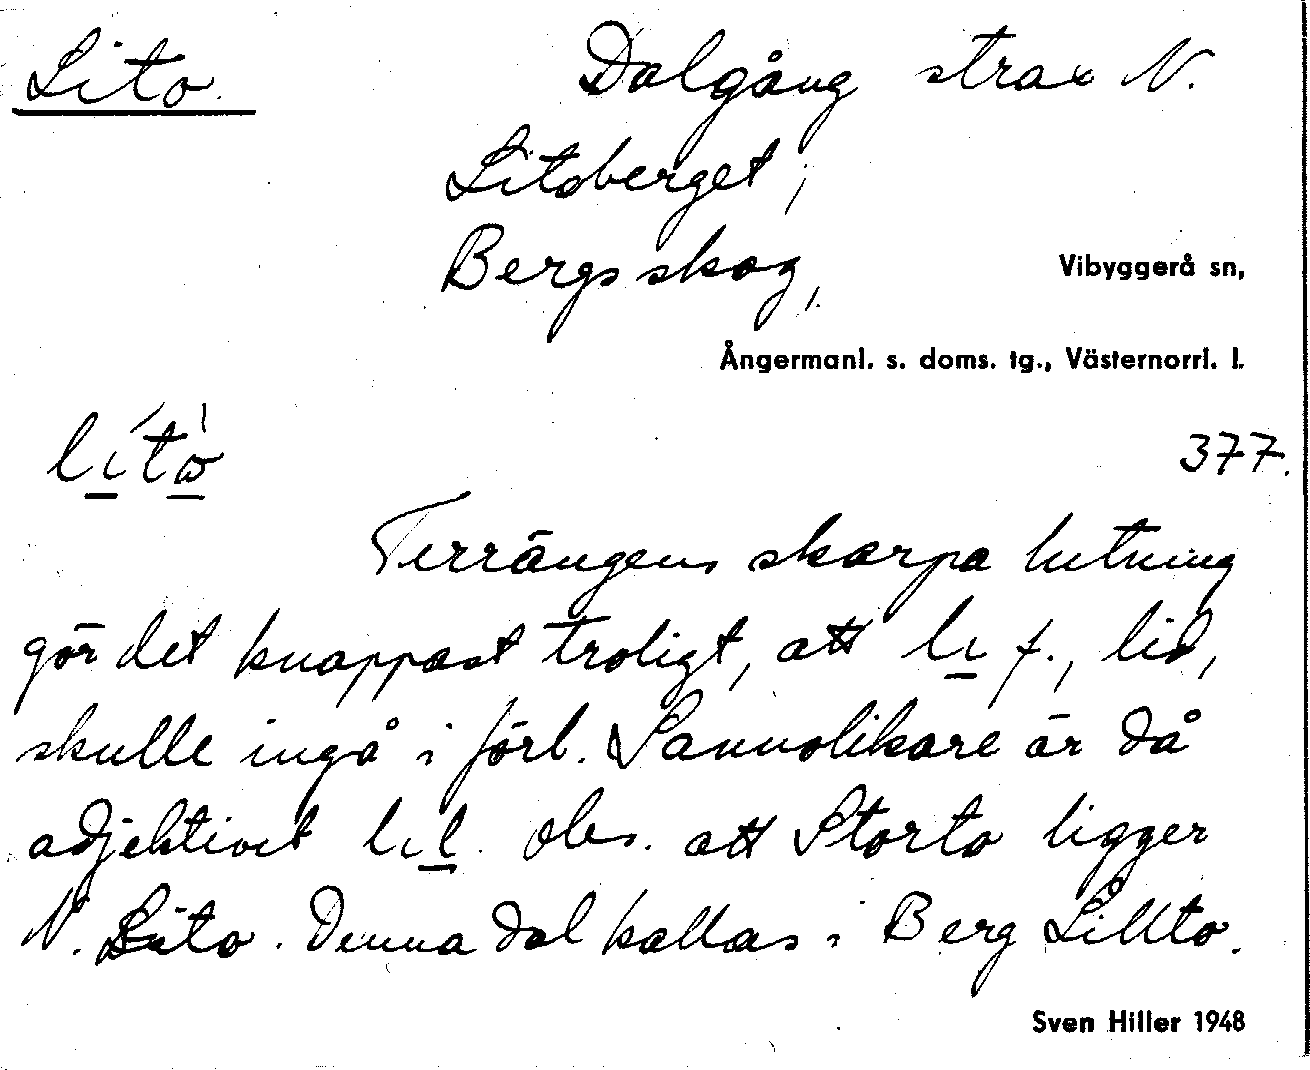 Lito. Dalgång strax N.
Litoberget;
Bergs skog, Vibyggerå sn,
Ångermanl. s. doms. tg., Västernorrl. l.
lítò 377.
Terrängens skarpa lutning
gör det knappast troligt, att li f., lid,
skulle ingå i förl. Sannolikare är då
adjektivet lil. obs. att Storto ligger
N. Lito. Denna dal kallas i Berg Lillto.
Sven Hiller 1948